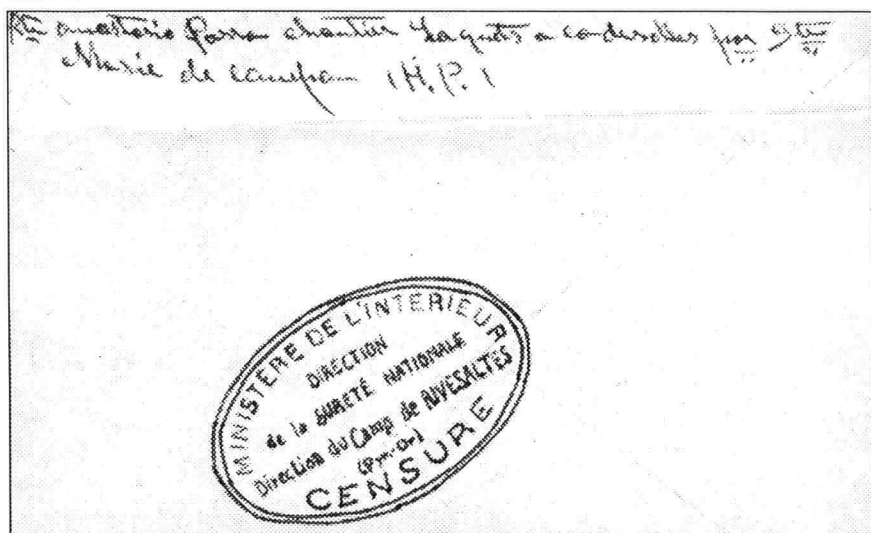 anastasio Parra chantier Laquets a condeselles par Ste
Marie de campan (H.P.)
MINISTÈRE DE L'INTERIEUR
DIRECTION
de la SURETÉ NATIONALE
Direction du Camp de RIVESALTES
(Pyr.-Or)
CENSURE